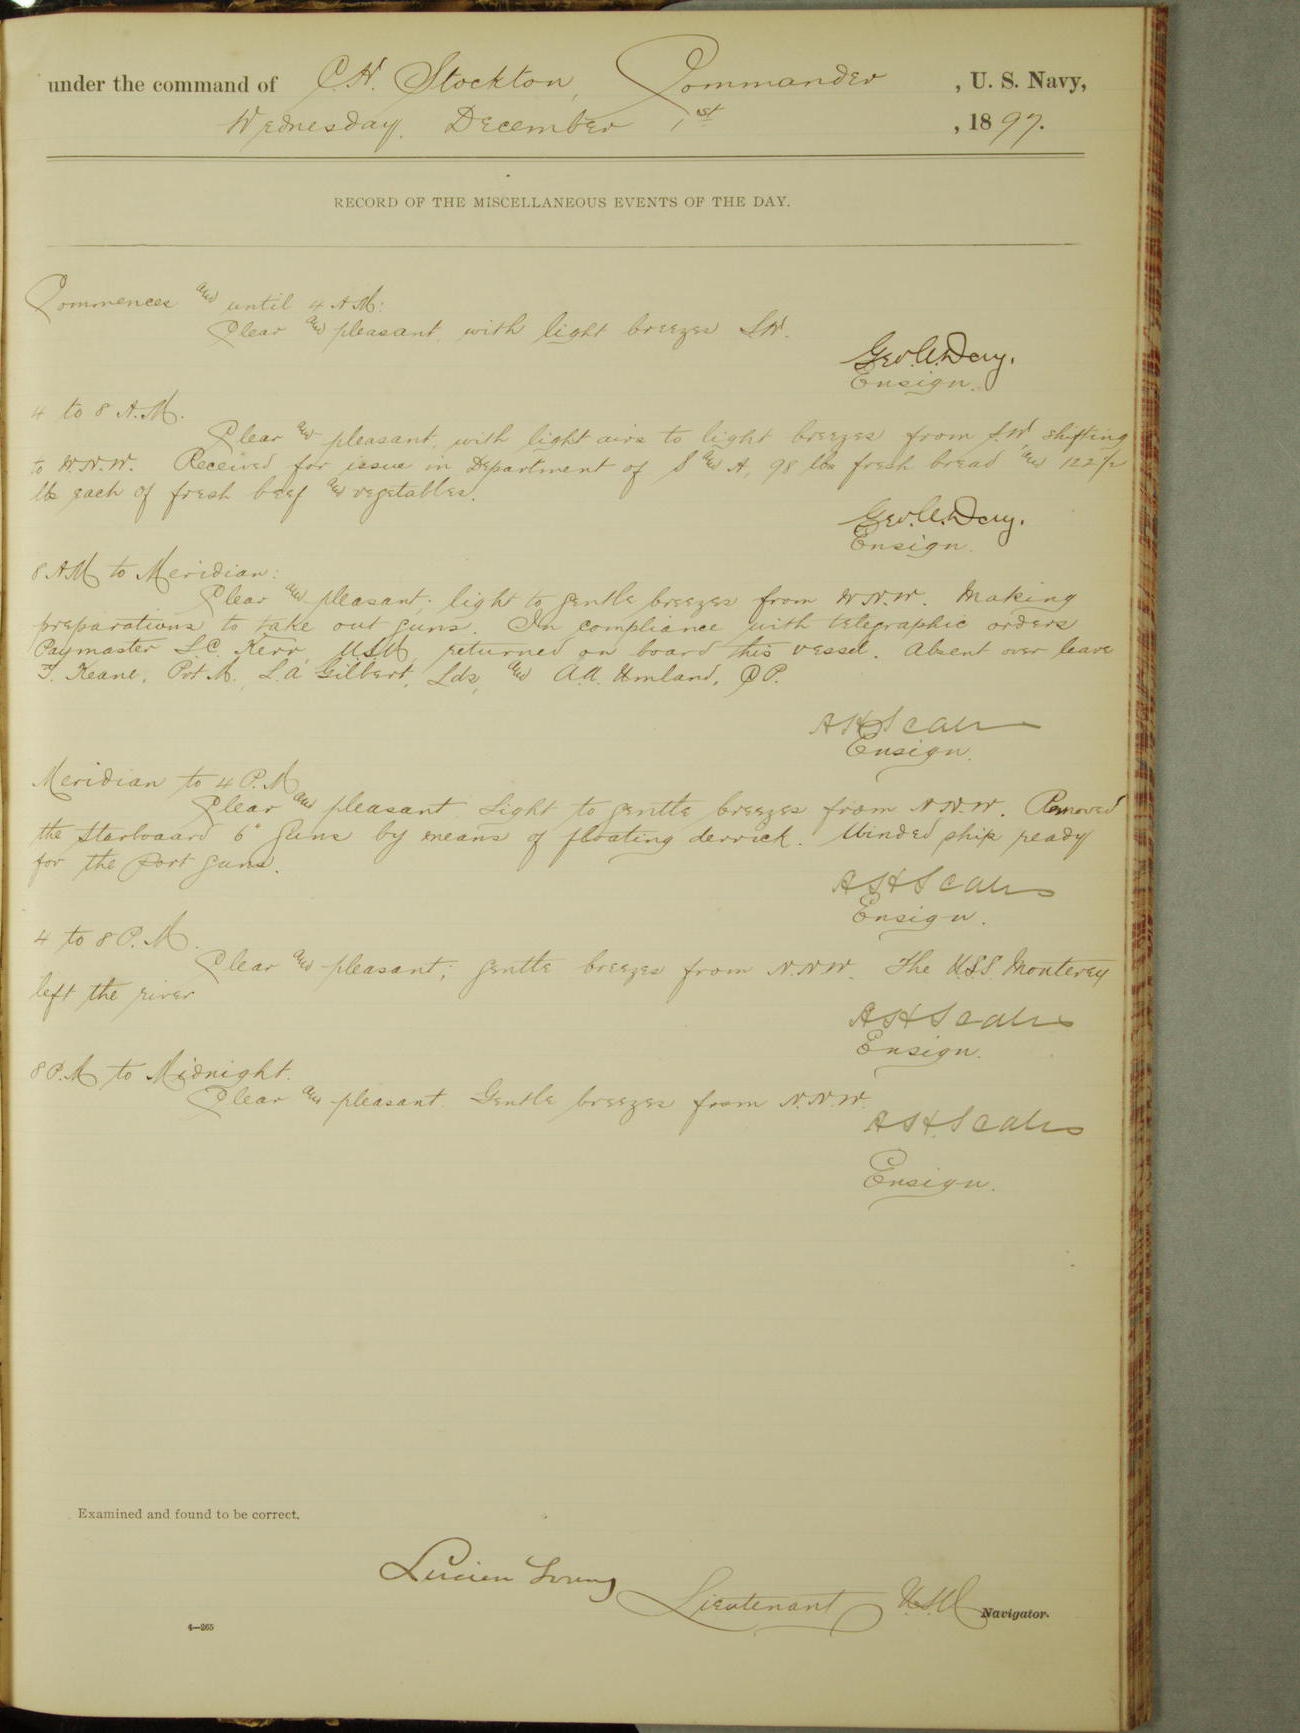 under the command of C.H. Stockton, Commander, U. S. Navy,
Wednesday, December 1st, 1897.
RECORD OF THE MISCELLANEOUS EVENTS OF THE DAY.
Commences and until 4 A.M:
Clear and pleasant, with light breezes S.W.
Geo. C. Day.
Ensign.
4 to 8 A.M.
Clear and pleasant, with light airs to light breezes from S.W. shifting
to W.N.W. Received for issue in Department of S and A, 98 lbs fresh bread and 122 1/2
lbs each of fresh beef and vegetables.
Geo. C. Day.
Ensign.
8 AM to Meridian:
Clear and pleasant; light to gentle breezes from W.N.W. Making
preparations to take out guns. In compliance with telegraphic orders
Paymaster L.C. Kerr, USN, returned on board this vessel. Absent over leave
T. Keane, Pvt M., L.A. Gilbert, Lds, and A.A. Umland, CP.
A H Scales
Ensign.
Meridian to 4 P.M
Clear and pleasant Light to gentle breezes from N.N.W. Removed
the starboaard 6" guns by means of floating derrick. Winded ship ready
for the Port guns.
A H Scales
Ensign.
4 to 8 P.M.
Clear and pleasant; gentle breezes from N.N.W. The U.S.S. Monterey
left the river
A H Scales
Ensign.
8 P.M to Midnight.
Clear and pleasant. Gentle breezes from N.N.W.
A H Scales
Ensign.
Examined and found to be correct.
Lucien Young
Lieutenant U.S.N. Navigator.
4—265